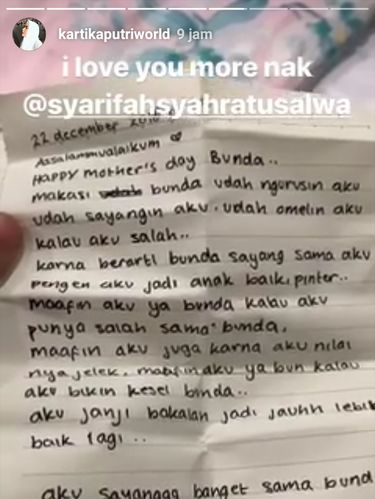 kartikaputriworld 9 jam
i love you more nak
@syarifahsyahratusalwa
22 december
Assalammualaikum
Happy mother's day Bunda..
makasi udah bunda udah ngurusin aku
udah sayangin aku. udah omelin aku
kalau aku salah..
karna berarti bunda sayang sama aku
pengen aku jadi anak baik, pinter..
maafin aku ya bunda kalau aku
punya salah sama bunda.
maafin aku juga karna aku nilai
nya jelek. maafin aku ya bun kalau
aku bikin kesel bunda..
aku janji bakalan jadi jauhh lebih
baik lagi..
aku sayangga banget sama bund